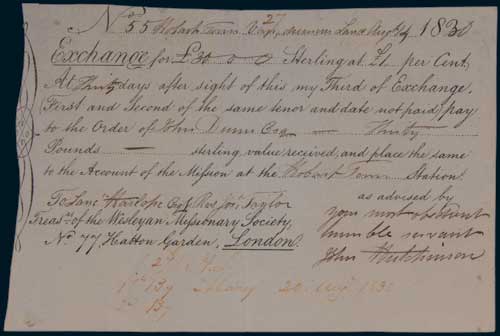 No. 55 Hobart Town Van diemens Land Augt 24 1830
27
Exchange for £30 " 0 " 0 Sterling at £1 per Cent,
At Thirty days after sight of this my Third of Exchange,
First and Second of the same tenor and date not paid, pay
to the Order of John Dunn Esq — Thirty
Pounds — sterling, value received, and place the same
to the Account of the Mission at the Hobart Town Station.
as advised by
To Lanct Haslope Esq & Rev Jos. Taylor
Treasrs. of the Wesleyan Missionary Society,
No. 77 Hatton Garden, London.
your most obedient
humble servant
John Hutchinson
20 Augt 1830